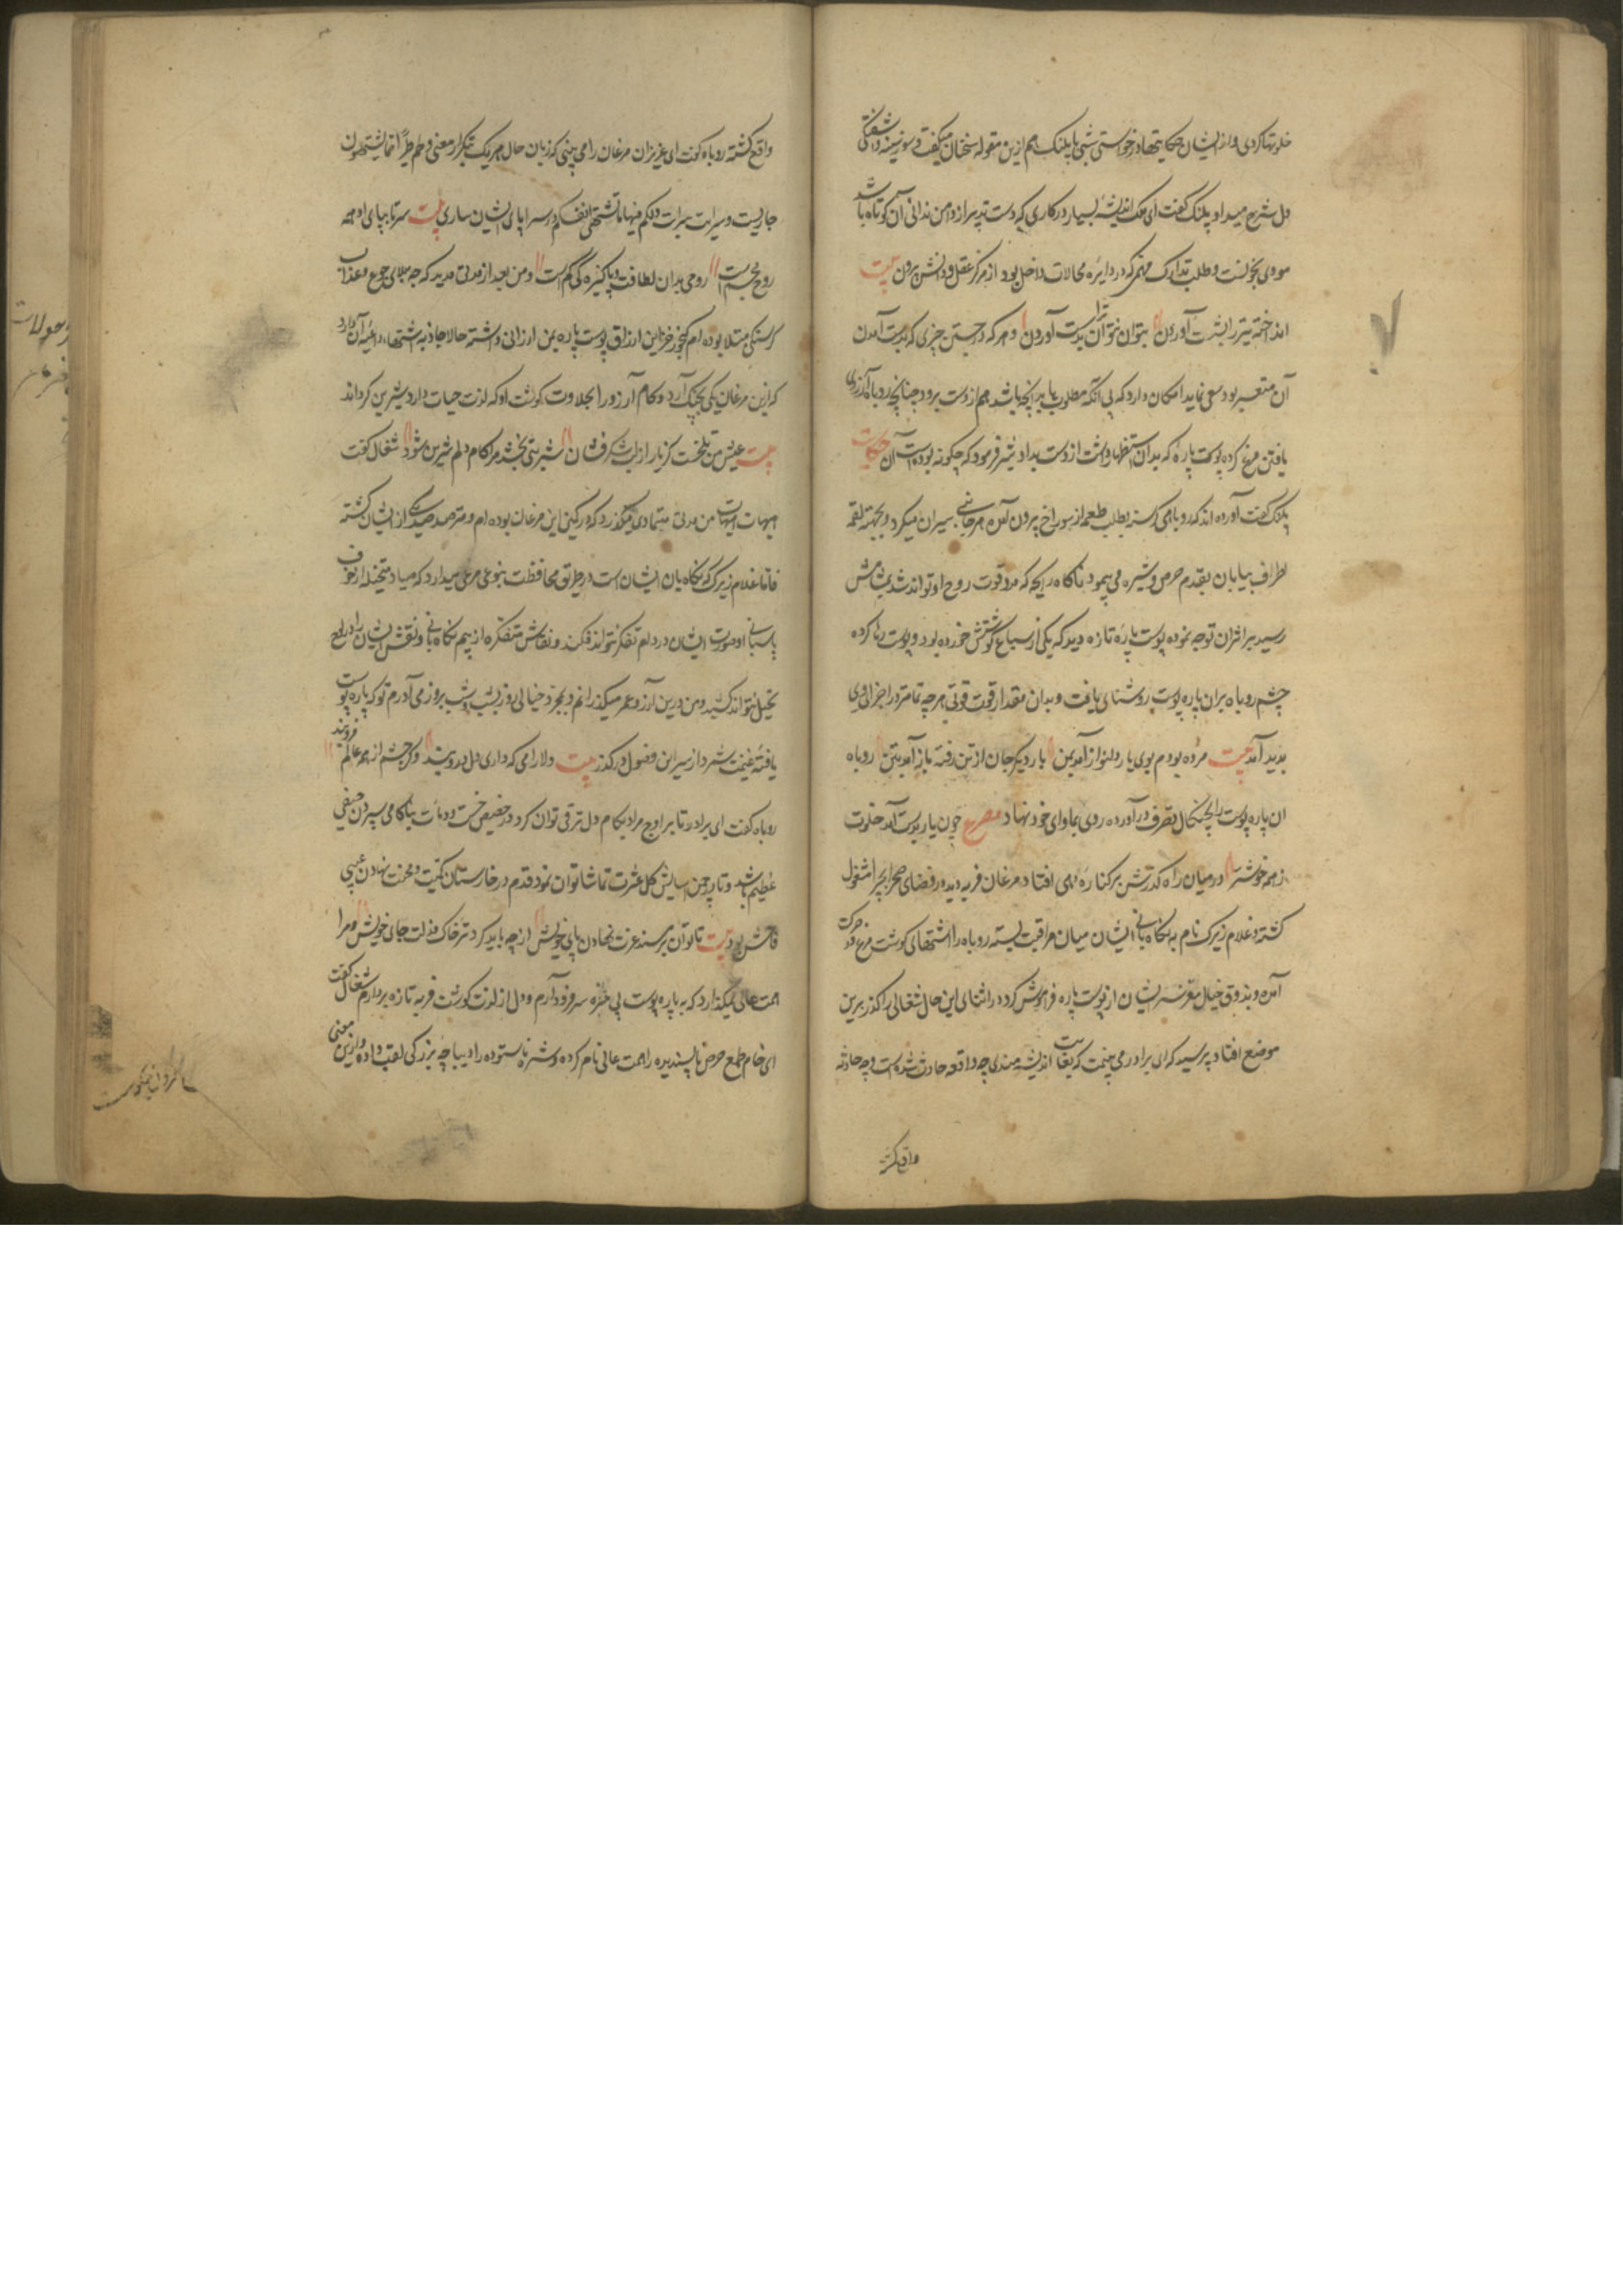 خلوتها کردی و از ایشان حکایتها درخواستی شبی با پلنک هم ازین مقوله سخنان میکفت و سوز سینه و آشفتکی
دل شرح میداد پلنک کفت ای ملک اندیشه بسیار در کاری که دست تدبیر از دامن تدارک آن کوتاه باشد
مودی بجنونست و طلب تدارک مهمی که در دایره محالات داخل بود از مرکز عقل و دانش بیرون بیت
انداخته تیر را بشست آوردن نتوان نتوان بدست آوردن و هر که در جستن چیزی که بدست آمدن
آن متعسر بود سعی نماید امکان دارد که بی آنکه مطلوب یابد آنچه باشد هم از دست برود چنانچه روباه آرزوی
یافتن مرغ کرده پوست پاره که بدان استظهار داشت از دست بداد شیر فرمود که چکونه بوده است آن حکایت
پلنک کفت آورده اند که روباهی کرسنه بطلب طعمه از سوراخ بیرون آمده هر جانبی سیران میکرد و بجهت لقمه
اطراف بیابان بقدم حرص و شره می پیمود ناکاه رایحه که مدد قوت روح او تواند شد بمشامش
رسید بر اثر آن توجه نموده پوست پاره تازه دید که یکی از سباع کوشتش خورده بود و پوست رها کرده
چشم روباه بران پاره پوست روشنای یافت و بدان مقدار قوت قوتی هر چه تمامتر در اجزا وی
پدید آمد بیت مرده بودم بوی یار دلنواز آمد بمن بار دیکر جان از تن رفته باز آمد بتن روباه
ان پاره پوست را بچنکال تصرف در آورده روی بماوای خود نهاد مصرع چون یار بدست آمد خلوت
ز همه خوشتر در میان راه کذرش بر کناره دهی افتاد مرغان فربه دید در فضای صحرا بچرا مشغول
کشته و غلام زیرک نام به نکاه بانی ایشان میان مراقبت بسته روباه را اشتهای کوشت مرغ در حرکت
آمده و بذوق خیال مغز سر ایشان از پوست پاره فراموش کرد در اثنای این حال شغالی را کذر برین
موضع افتاد پرسید که ای برادر می بینمت که بغایت اندیشه مندی چه واقعه حادث شده است و چه حادثه
واقع کشته
واقع کشته روباه کفت ای عزیز ان مرغان را می بینی که زبان حال هر یک بتکرار معنی و لحم طیر مما یشتهون
جاریست و سرایت سرایت و لکم فیها ما تشتهی انفسکم در سراپای ایشان ساری بیت سر تا بپای او همه
روح مجسم است روحی بدان لطافت و پاکیزه کی کم است و من بعد از مدتی مدید که به بلای جوع و عذاب
کرسنکی مبتلا بوده ام کنجور خزاین ارزاق پوست پاره بمن ارزانی داشته حالا جاذبه اشتها داعیه آن دارد
که ازین مرغان یکی بچنک آرد و کام آرزو را بحلاوت کوشت او که لذت حیات دارد شیرین کرداند
بیت عیش من تلخست کز بار از لب شکر فشان شربتی بخشد مرا کام دلم شیرین شود شغال کفت
هیهات هیهات من مدتی متمادی میکذرد که در کمین این مرغان بوده ام و مترصد صید یکی از ایشان کشته
فاما غلام زیرک که نکاه بان ایشان است در طریق محافظت بنوعی مرعی میدارد که صیاد متخیله از خوف
پاسبانی او صورت ایشان در دام تفکر نتواند فکند و نقاش متفکره از بیم نکاه بانی او نقش ایشان را در لوح
تخیل نتواند کشید و من درین آرزو عمر میکذرانم و بمجرد خیالی روز بشب و شب بروز می آورم تو که پاره پوست
یافته غنیمت شمرد از سر این فضول در کذر بیت دلارامی که داری دل درو بند دکر چشم از همه عالم فروبند
روباه کفت ای برادر تا بر اوج مراد بکام دل ترقی توان کرد در حضیض خست و دنائت بناکامی سپردن حیفی
عظیم باشد و تا در چمن اسایش کل عشرت تماشا توان نمود قدم در خارستان نکبت و محنت نهادن عیبی
فاحش بود بیت تا توان بر مسند عزت نهادن پای خویش از چه باید کرد در خاک مذلت جای خویش و مرا
همت عالی نمیکذارد که به پاره پوست بی مزه سر فرود آرم و دل از لذت کوشت فربه تازه بردارم شغال کفت
ای خام طمع حرص ناپسندیده را همت عالی نام کرده و شره ناستوده را دیباچه بزرکی لقب داده و ازین معنی